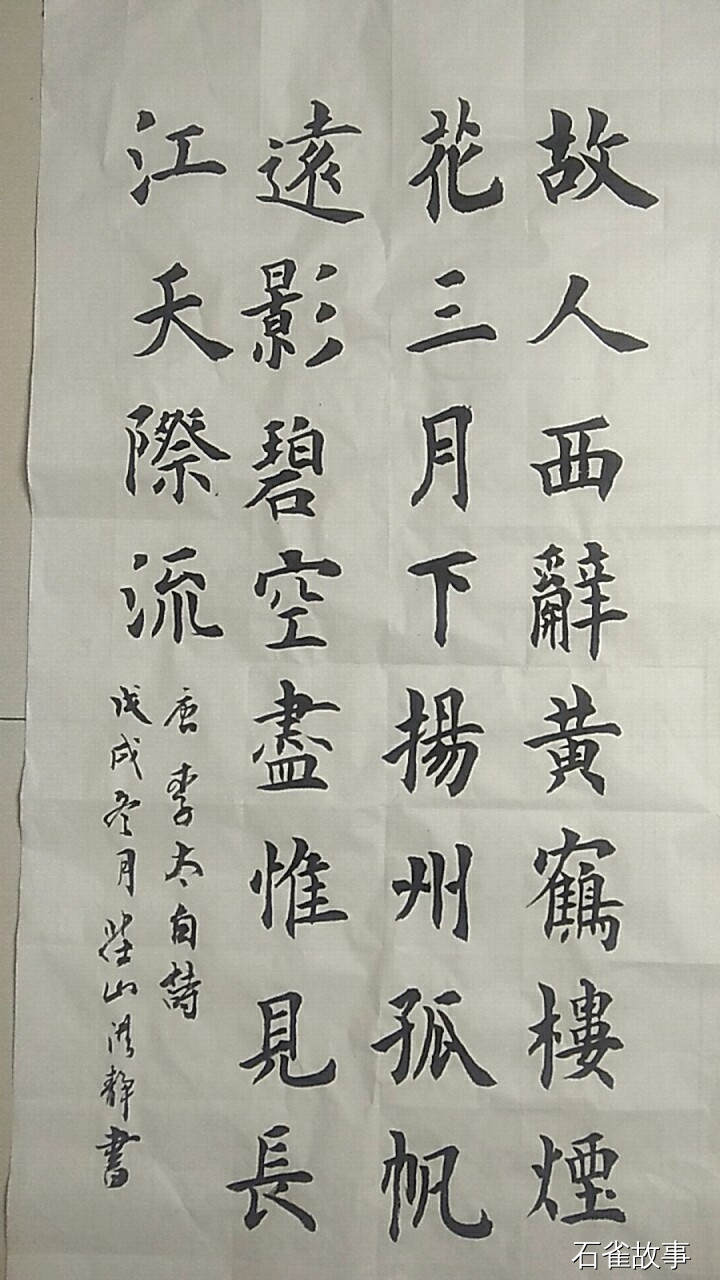 故人西辭黄鶴樓煙
花三月下揚州孤帆
遠影碧空盡惟見長
江天際流
唐李太白詩
戊戌冬月山静書
石雀故事